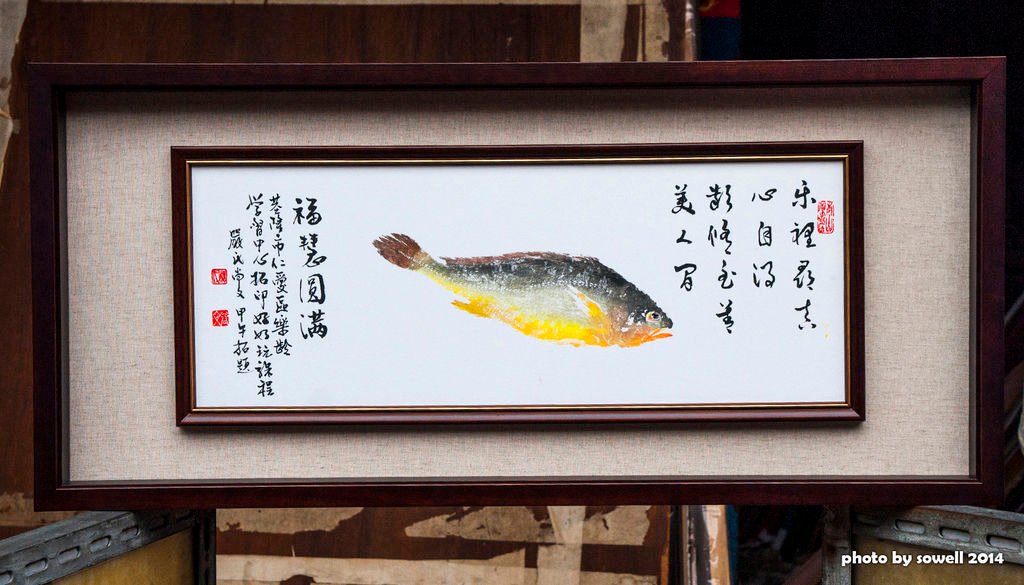 乐裡尋真
心自得
齡修至善
美人間
福慧圓满
基隆市仁愛區樂齡
学習中心拓印好好玩課程
嚴氏尚文 甲午拓題
photo by sowell 2014